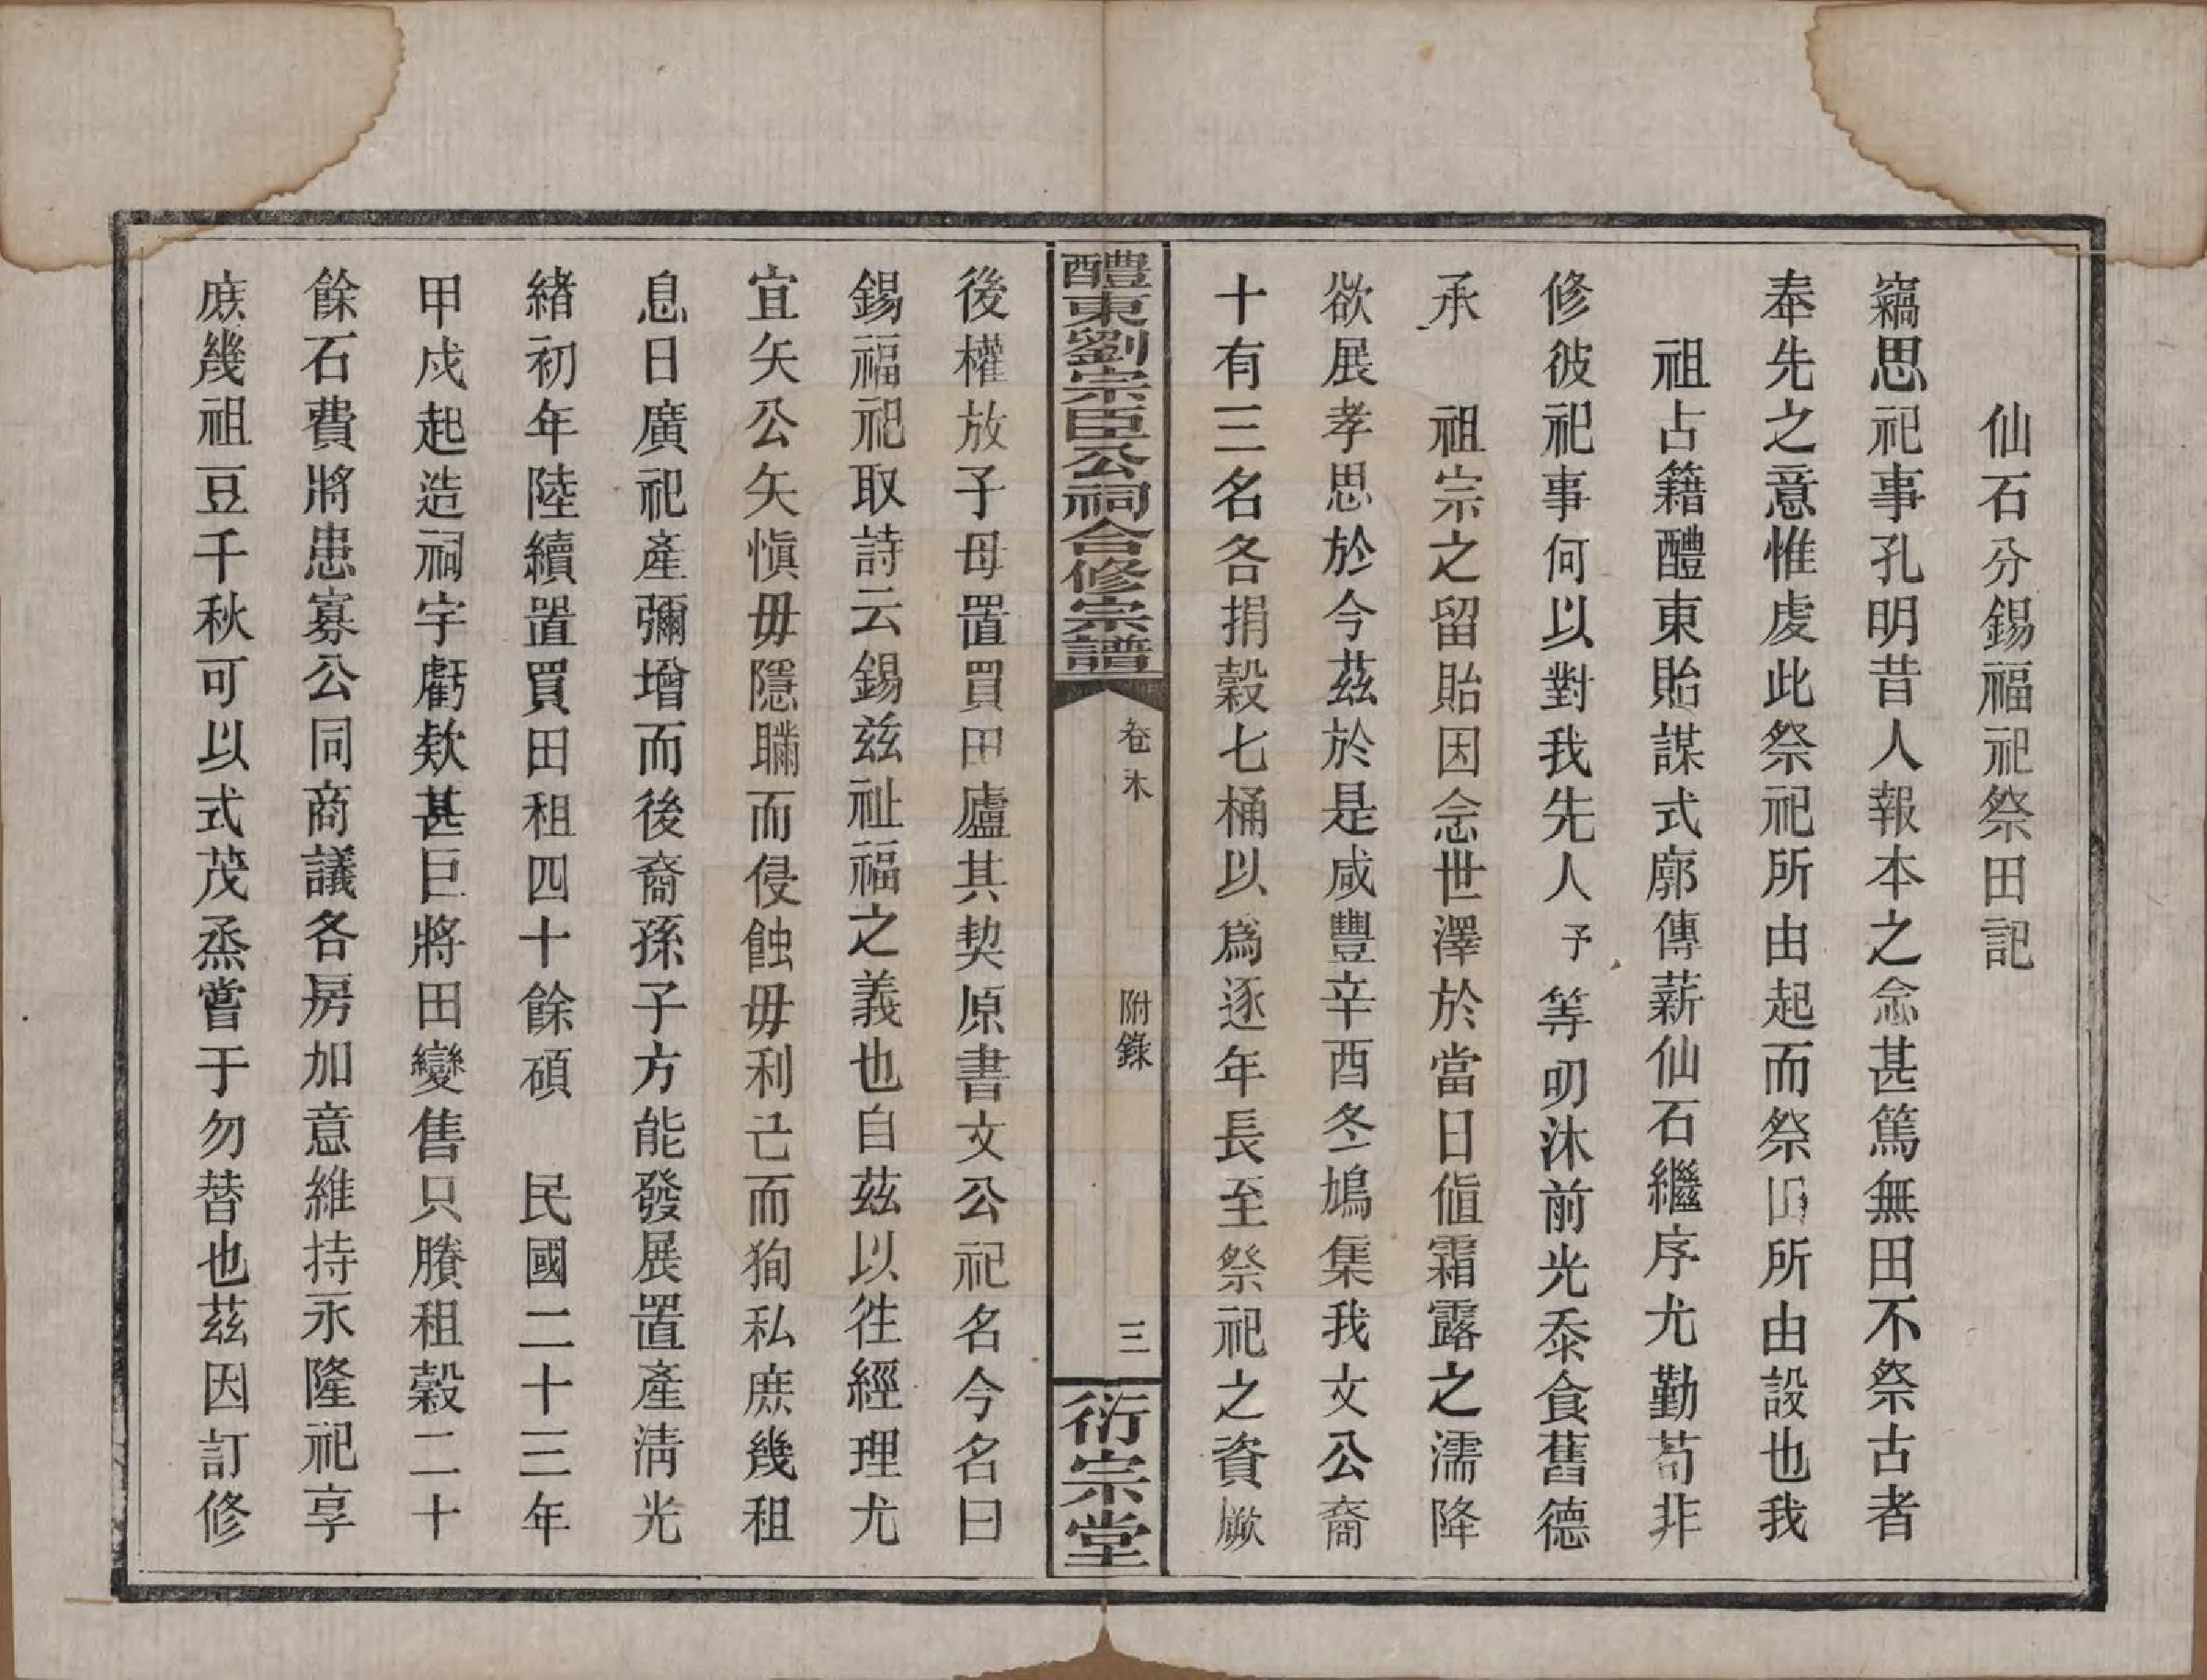 仙石分錫福祀祭田記
竊思祀事孔明昔人報本之念甚篤無田不祭古者
奉先之意惟虔此祭祀所由起而祭田所由設也我
祖占籍醴東貽謀式廓傳薪仙石繼序尤勤苟非
修彼祀事何以對我先人予等叨沐前光忝食舊德
承　祖宗之留貽因念世澤於當日值霜露之濡降
欲展孝思於今茲於是咸豐辛酉冬鳩集我文公裔
十有三名各捐穀七桶以爲逐年長至祭祀之資厥
醴東劉宗臣公祠合修宗譜　卷末　附錄　三　衍宗堂
後權放子母置買田廬其契原書文公祀名今名曰
錫福祀取詩云錫兹祉福之義也自茲以徃經理尤
宜矢公矢愼毋隱瞞而侵蝕毋利己而狥私庶幾租
息日廣祀產彌增而後裔孫子方能發展置產清光
緒初年陸續置買田租四十餘碩　民國二十三年
甲戍起造祠宇虧欵甚巨將田變售只賸租穀二十
餘石費將患寡公同商議各房加意維持永隆祀享
庶幾祖豆千秋可以式茂烝嘗于勿替也茲因訂修